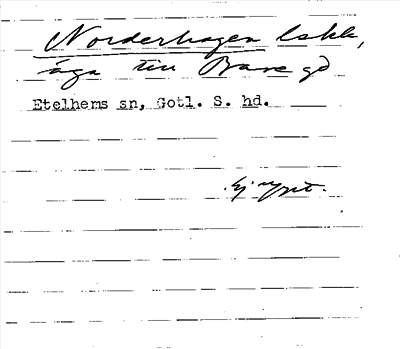 Norderhagen
äga till Bare gd
Etelhems sn, Gotl. S. hd.
Ej uppt.